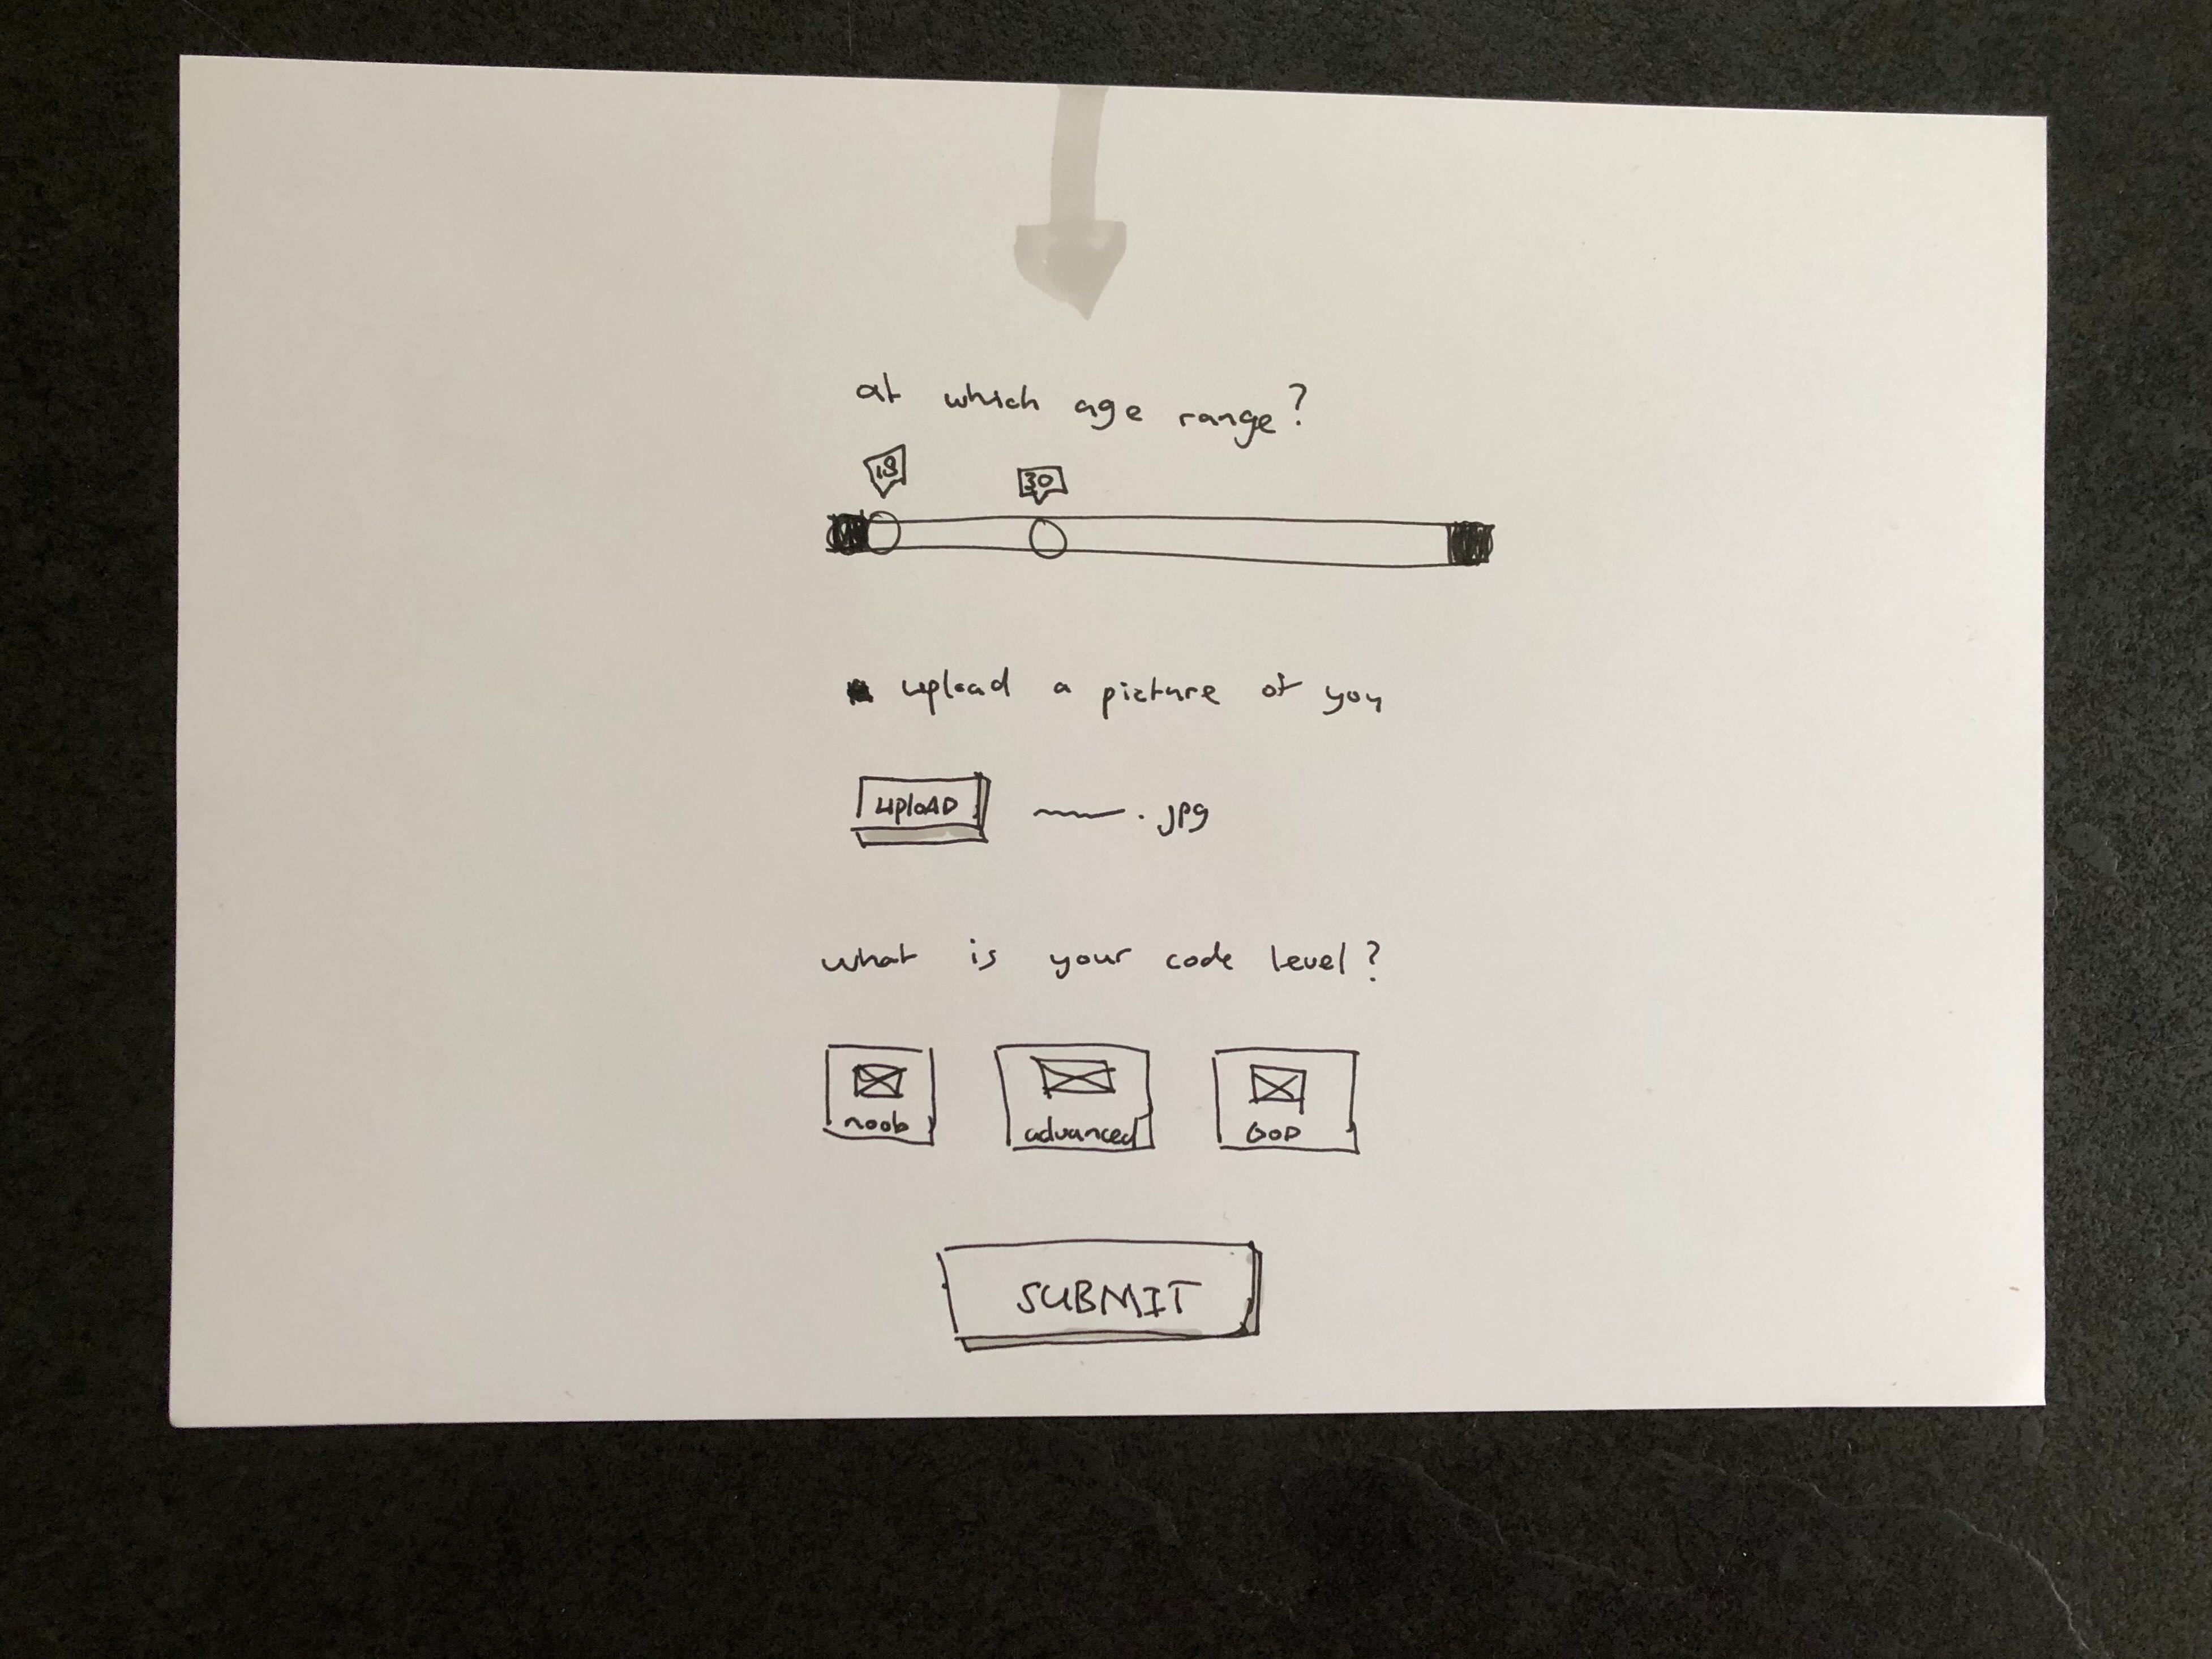 at which age range?
18 30
upload a picture of you
UPLOAD .jpg
what is your code level?
noob advanced GOD
SUBMIT